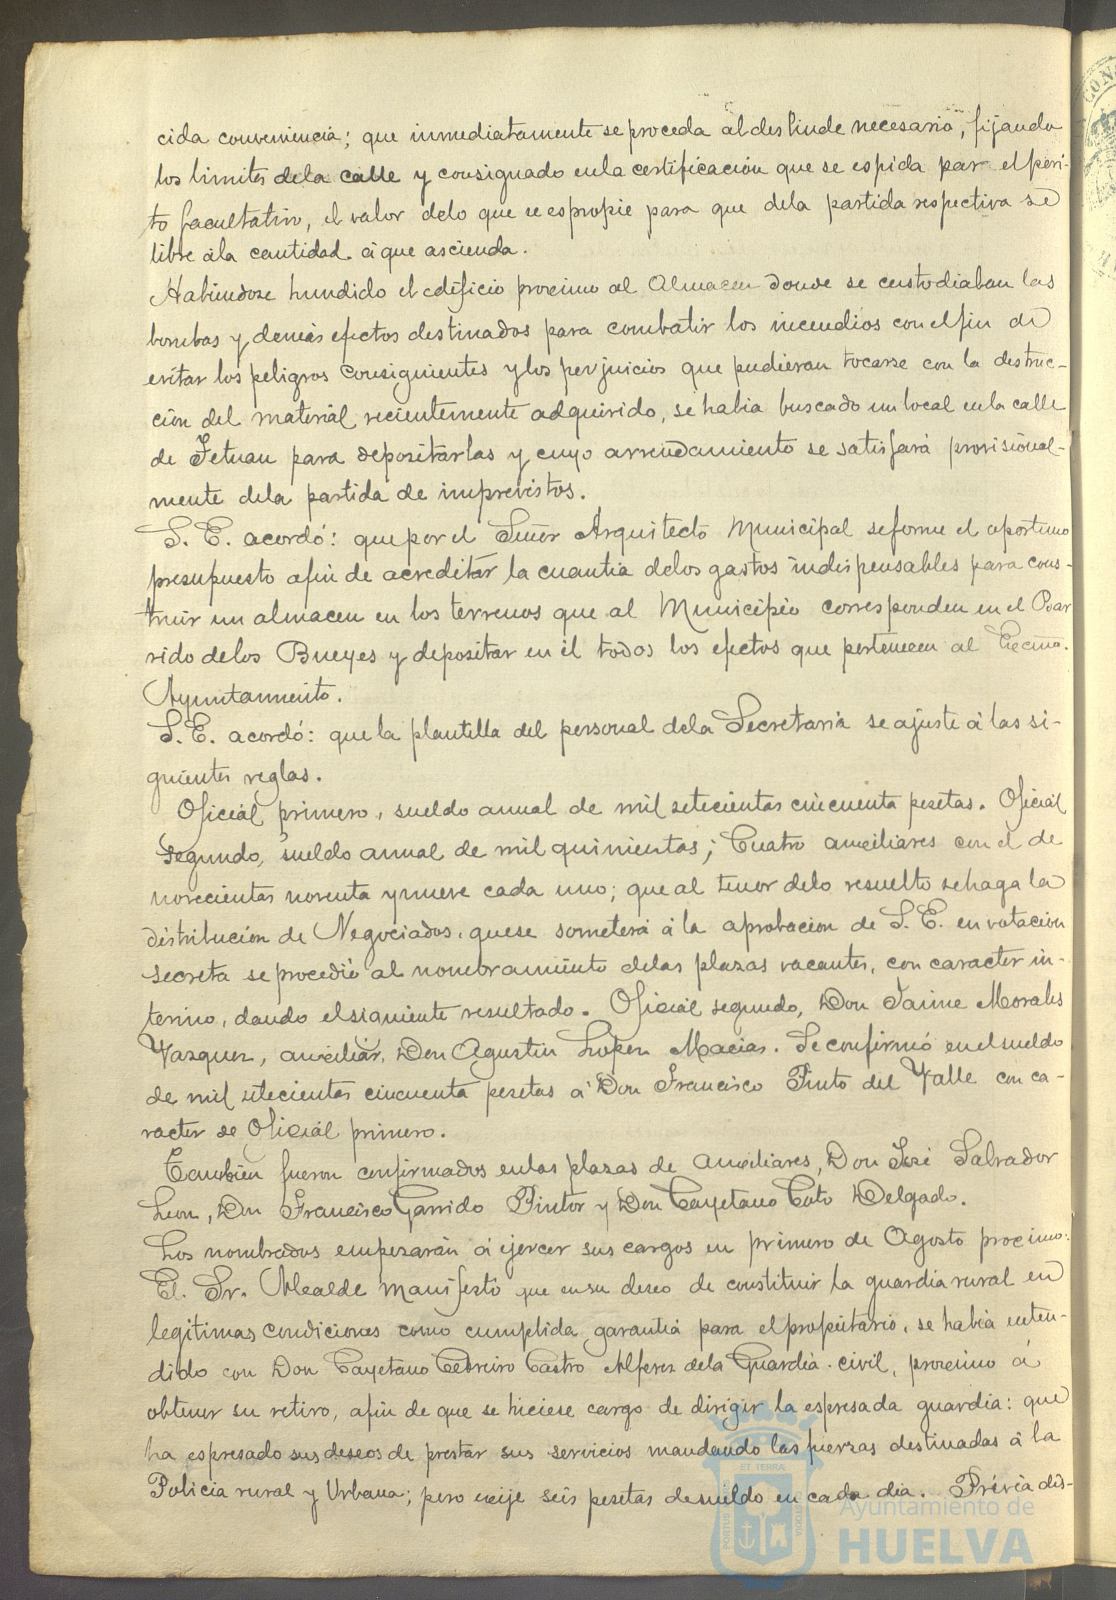 cida conveniencia; que inmediatamente se proceda al deslinde necesario, fijando
los limites dela calle y consignado enla certificación que se espida par el peri-
to facultativo, el valor delo que se espropie para que dela partida respectiva se
libre ála cantidad á que ascienda.
Habiendose hundido el edificio procimo al Almacen donde se custodiaban las
bombas y demás efectos destinados para combatir los incendios con el fin de
evitar los peligros consiguientes y los perjuicios que pudieran tocarse con la destruc-
ción del material recientemente adquirido, se habia buscado un local enla calle
de Tetuan para depositarlas y cuyo arrendamiento se satisfará provisional-
mente dela partida de imprevistos.
S. E. acordó: que por el Señor Arquitecto Municipal se forme el oportuno
presupuesto afin de acreditar la cuantia delos gastos indispensables para cons-
truir un almacen en los terrenos que al Municipio corresponden en el Bar
rido delos Bueyes y depositar en él todos los efectos que pertenecen al Excmo.
Ayuntamiento.
S. E. acordó: que la plantilla del personal dela Secretaria se ajuste á las si-
guientes reglas.
Oficial primero, sueldo anual de mil setecientas cincuenta pesetas. Oficial
segundo, sueldo anual de mil quinientas; Cuatro auxiliares con el de
novecientas noventa y nueve cada uno; que al tenor delo resuelto se haga la
distribución de Negociados, que se someterá á la aprobacion de S. E. en votación
secreta se procedió al nombramiento delas plazas vacantes, con caracter in-
terino, dando el siguiente resultado. Oficial segundo, Don Jaime Morales
Vazquez, auxiliar, Don Agustin Lopez Macias. Se confirmó en el sueldo
de mil setecientas cincuenta pesetas á Don Francisco Pinto del Valle con ca-
racter de Oficial primero.
Tambien fueron confirmados enlas plazas de auxiliares, Don José Salvador
Leon, Don Francisco Garrido Pintor y Don Cayetano Coto Delgado.
Los nombrados empezarán á ejercer sus cargos en primero de Agosto procimo.
El Sr. Alcalde manifestó que en su deseo de constituir la guardia rural en
legitimas condiciones como cumplida garantia para el propietario, se habia enten-
dido con Don Cayetano Castro Alferez dela Guardia civil, procimo á
obtener su retiro, afin de que se hiciese cargo de dirigir la espresada guardia: que
ha espresado sus deseos de prestar sus servicios mandando las fuerzas destinadas á la
Policia rural y Urbana; pero exije seis pesetas de sueldo en cada dia. Prévia dis-
Ayuntamiento de
HUELVA